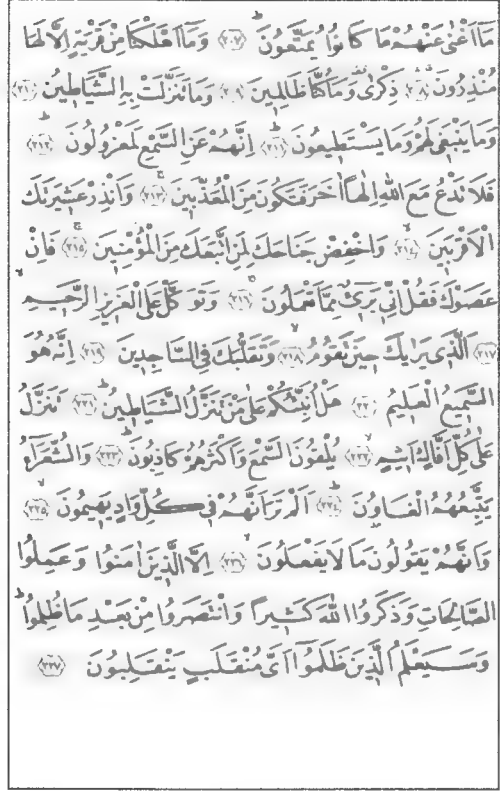 مَٓا اَغْنٰى عَنْهُمْ مَا كَانُوا يُمَتَّعُونَۜ ﴿٢٠٧﴾ وَمَٓا اَهْلَكْنَا مِنْ قَرْيَةٍ اِلَّا لَهَا
مُنْذِرُونَۗ ﴿٢٠٨﴾ ذِكْرٰى۠ وَمَا كُنَّا ظَالِمٖينَ ﴿٢٠٩﴾ وَمَا تَنَزَّلَتْ بِهِ الشَّيَاطٖينُ ﴿٢١٠﴾
وَمَا يَنْبَغٖى لَهُمْ وَمَا يَسْتَطٖيعُونَۜ ﴿٢١١﴾ اِنَّهُمْ عَنِ السَّمْعِ لَمَعْزُولُونَۜ ﴿٢١٢﴾
فَلَا تَدْعُ مَعَ اللّٰهِ اِلٰهًا اٰخَرَ فَتَكُونَ مِنَ الْمُعَذَّبٖينَۚ ﴿٢١٣﴾ وَاَنْذِرْ عَشٖيرَتَكَ
الْاَقْرَبٖينَۙ ﴿٢١٤﴾ وَاخْفِضْ جَنَاحَكَ لِمَنِ اتَّبَعَكَ مِنَ الْمُؤْمِنٖينَۚ ﴿٢١٥﴾ فَاِنْ
عَصَوْكَ فَقُلْ اِنّٖى بَرٖٓىءٌ مِمَّا تَعْمَلُونَۚ ﴿٢١٦﴾ وَتَوَكَّلْ عَلَى الْعَزٖيزِ الرَّحٖيمِۙ
﴿٢١٧﴾ اَلَّذٖى يَرٰيكَ حٖينَ تَقُومُۙ ﴿٢١٨﴾ وَتَقَلُّبَكَ فِى السَّاجِدٖينَ ﴿٢١٩﴾ اِنَّهُ هُوَ
السَّمٖيعُ الْعَلٖيمُ ﴿٢٢٠﴾ هَلْ اُنَبِّئُكُمْ عَلٰى مَنْ تَنَزَّلُ الشَّيَاطٖينُۜ ﴿٢٢١﴾ تَنَزَّلُ
عَلٰى كُلِّ اَفَّاكٍ اَثٖيمٍۙ ﴿٢٢٢﴾ يُلْقُونَ السَّمْعَ وَاَكْثَرُهُمْ كَاذِبُونَۜ ﴿٢٢٣﴾ وَالشُّعَرَٓاءُ
يَتَّبِعُهُمُ الْغَاوُ۫نَۜ ﴿٢٢٤﴾ اَلَمْ تَرَ اَنَّهُمْ فٖى كُلِّ وَادٍ يَهٖيمُونَۙ ﴿٢٢٥﴾
وَاَنَّهُمْ يَقُولُونَ مَا لَا يَفْعَلُونَۙ ﴿٢٢٦﴾ اِلَّا الَّذٖينَ اٰمَنُوا وَعَمِلُوا
الصَّالِحَاتِ وَذَكَرُوا اللّٰهَ كَثٖيرًا وَانْتَصَرُوا مِنْ بَعْدِ مَا ظُلِمُواۜ
وَسَيَعْلَمُ الَّذٖينَ ظَلَمُٓوا اَىَّ مُنْقَلَبٍ يَنْقَلِبُونَ ﴿٢٢٧﴾